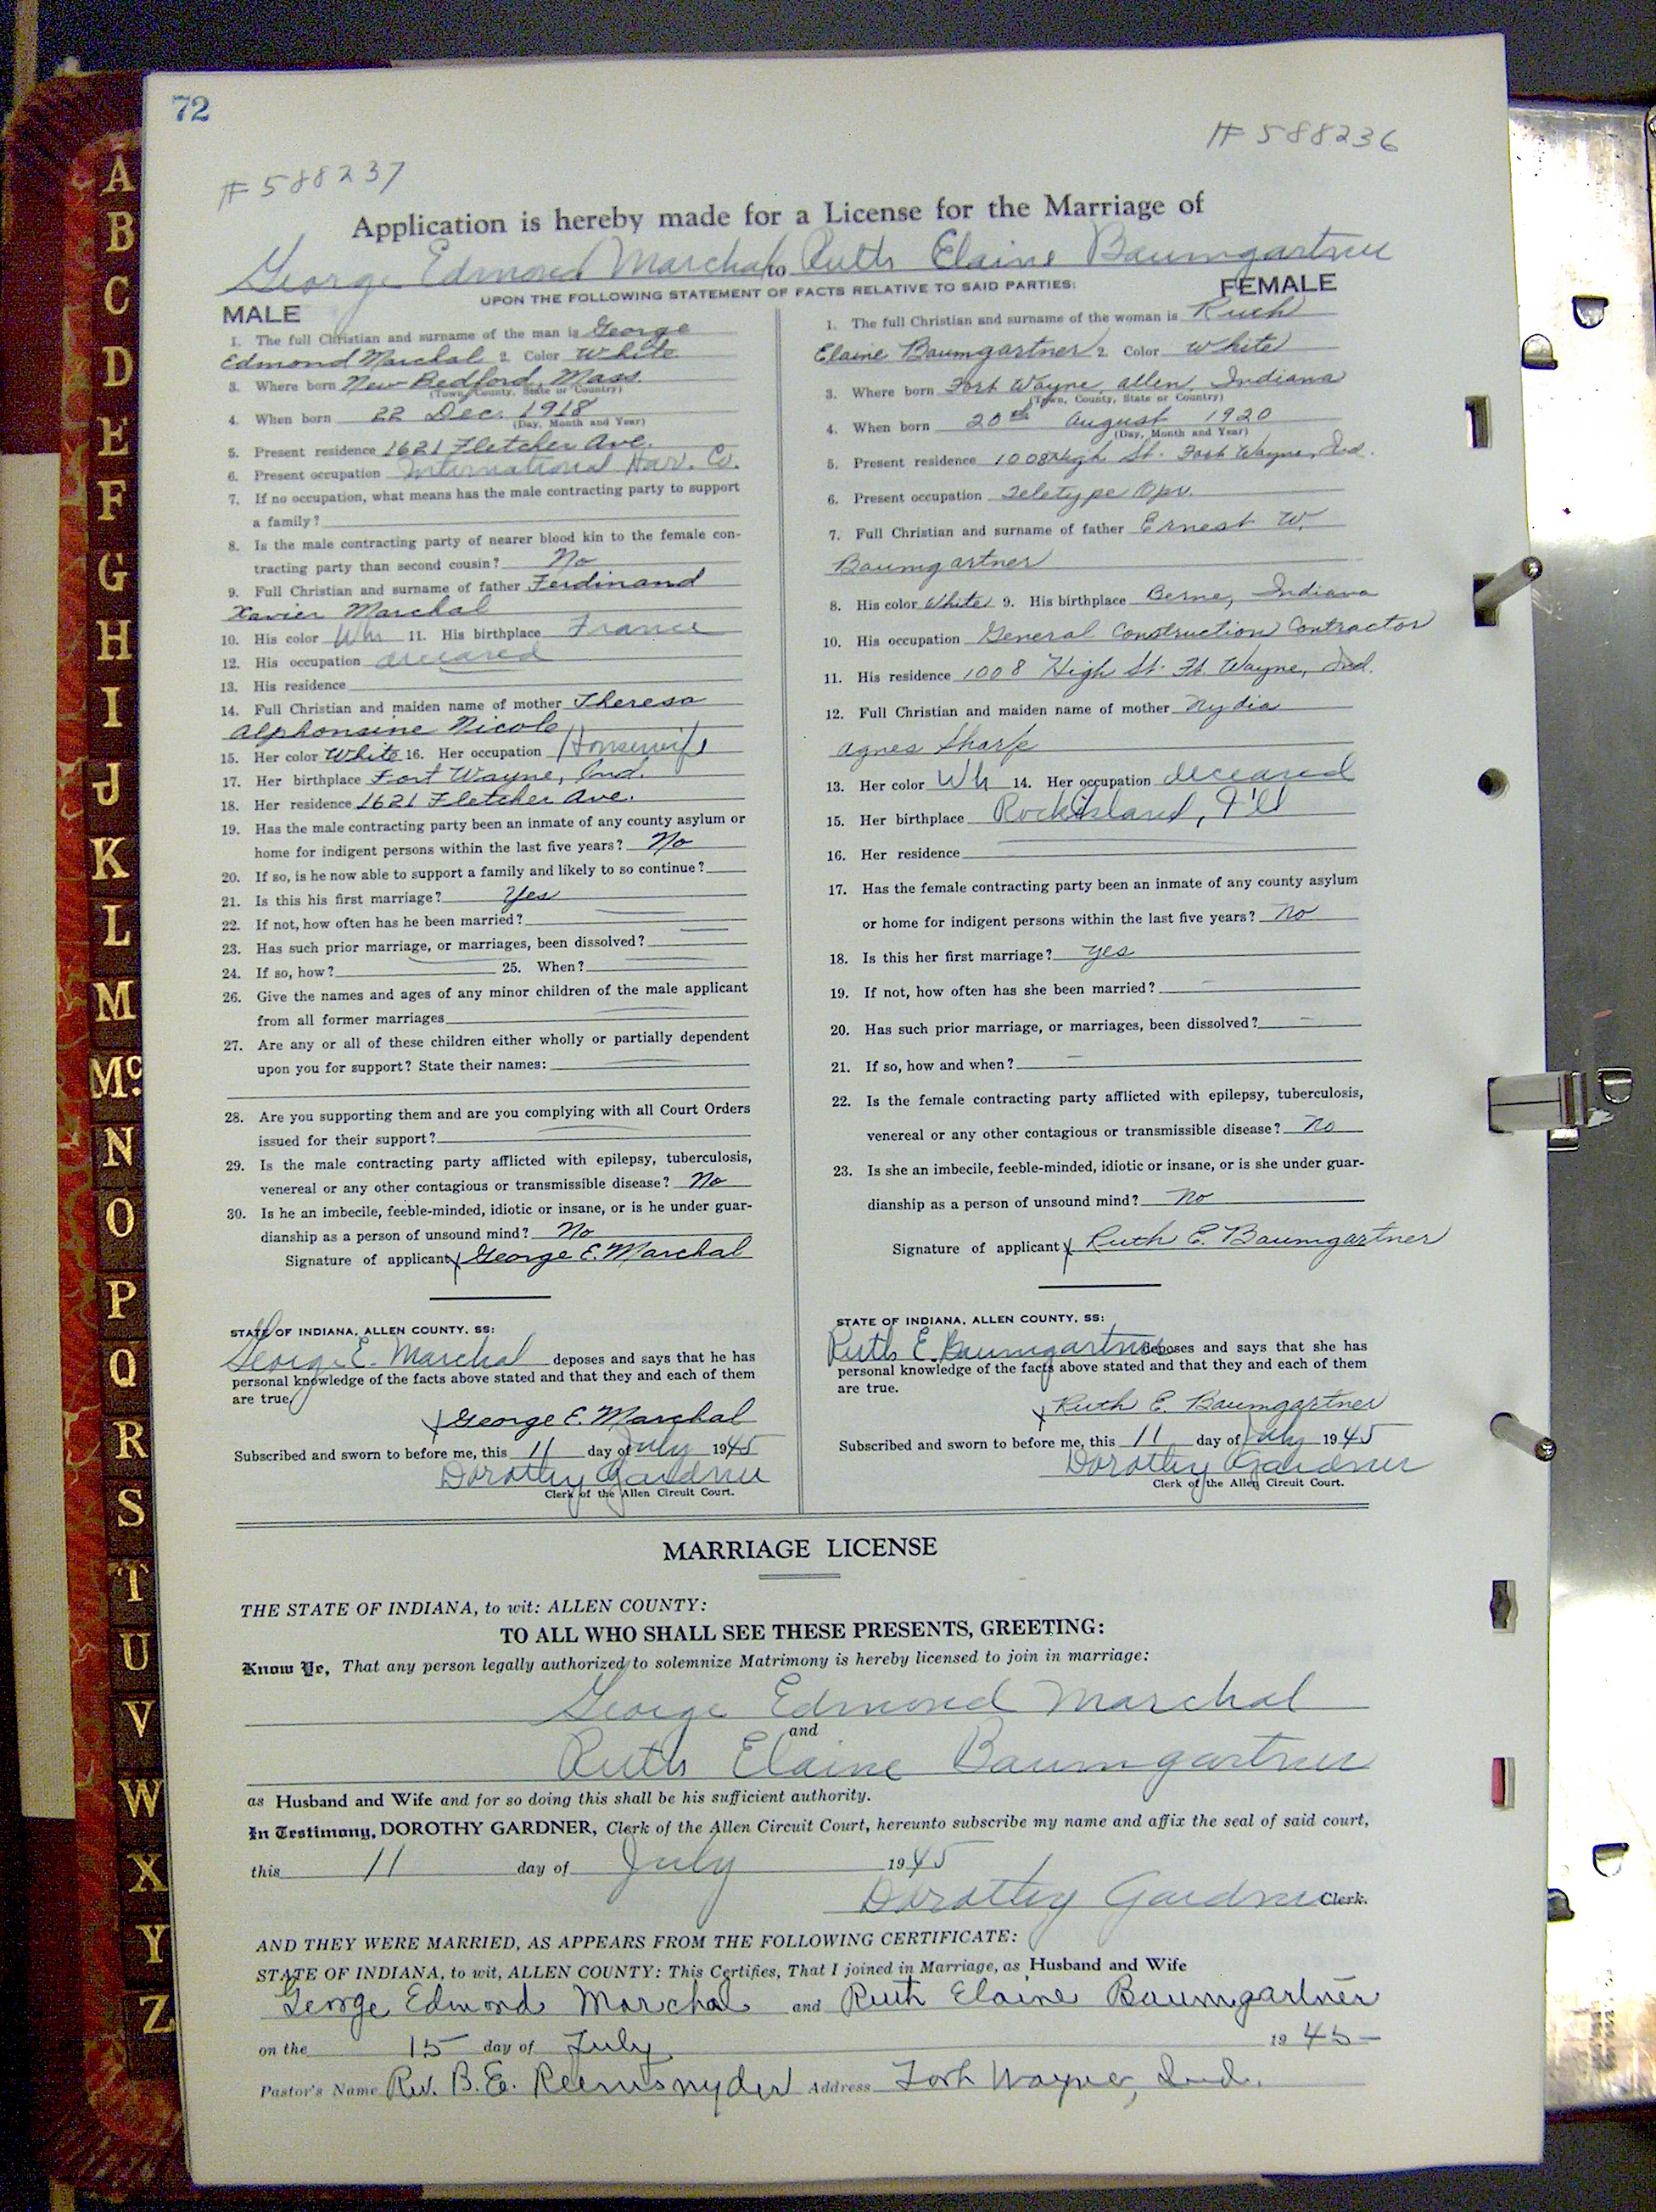 72
# 588236
# 588237
Application is hereby made for a License for the Marriage of
George Edmond Marchal to Ruth Elaine Baumgartner
UPON THE FOLLOWING STATEMENT OF FACTS RELATIVE TO SAID PARTIES:
MALE
1. The full Christian and surname of the man is George
Edmond Marchal 2. Color White
3. Where born New Bedford, Mass.
(Town, County, State or Country)
4. When born 22 Dec. 1918
(Day, Month and Year)
5. Present residence 1621 Fletcher Ave.
6. Present occupation International Har. Co.
7. If no occupation, what means has the male contracting party to support
a family?
8. Is the male contracting party of nearer blood kin to the female con-
tracting party than second cousin? No
9. Full Christian and surname of father Ferdinand
Xavier Marchal
10. His color Wh 11. His birthplace France
12. His occupation deceased
13. His residence
14. Full Christian and maiden name of mother Theresa
Alphonsine Nicole
15. Her color White 16. Her occupation Housewife
17. Her birthplace Fort Wayne, Ind.
18. Her residence 1621 Fletcher Ave.
19. Has the male contracting party been an inmate of any county asylum or
home for indigent persons within the last five years? No
20. If so, is he now able to support a family and likely to so continue?
21. Is this his first marriage? Yes
22. If not, how often has he been married?
23. Has such prior marriage, or marriages, been dissolved?
24. If so, how? 25. When?
26. Give the names and ages of any minor children of the male applicant
from all former marriages
27. Are any or all of these children either wholly or partially dependent
upon you for support? State their names:
28. Are you supporting them and are you complying with all Court Orders
issued for their support?
29. Is the male contracting party afflicted with epilepsy, tuberculosis,
venereal or any other contagious or transmissible disease? No
30. Is he an imbecile, feeble-minded, idiotic or insane, or is he under guar-
dianship as a person of unsound mind? No
Signature of applicant x George E. Marchal
STATE OF INDIANA, ALLEN COUNTY, SS:
George E. Marchal deposes and says that he has
personal knowledge of the facts above stated and that they and each of them
are true.
x George E. Marchal
Subscribed and sworn to before me, this 11 day of July 1945
Dorothy Gardner
Clerk of the Allen Circuit Court.
FEMALE
1. The full Christian and surname of the woman is Ruth
Elaine Baumgartner 2. Color White
3. Where born Fort Wayne Allen, Indiana
(Town, County, State or Country)
4. When born 20th August 1920
(Day, Month and Year)
5. Present residence 1008 High St. Fort Wayne, Ind.
6. Present occupation Teletype Opr.
7. Full Christian and surname of father Ernest W.
Baumgartner
8. His color White 9. His birthplace Berne, Indiana
10. His occupation General Construction Contractor
11. His residence 1008 High St. Ft. Wayne, Ind.
12. Full Christian and maiden name of mother Nydia
Agnes Sharpe
13. Her color Wh 14. Her occupation deceased
15. Her birthplace Rock Island, Ill
16. Her residence
17. Has the female contracting party been an inmate of any county asylum
or home for indigent persons within the last five years? no
18. Is this her first marriage? yes
19. If not, how often has she been married?
20. Has such prior marriage, or marriages, been dissolved?
21. If so, how and when?
22. Is the female contracting party afflicted with epilepsy, tuberculosis,
venereal or any other contagious or transmissible disease? no
23. Is she an imbecile, feeble-minded, idiotic or insane, or is she under guar-
dianship as a person of unsound mind? no
Signature of applicant x Ruth E. Baumgartner
STATE OF INDIANA, ALLEN COUNTY, SS:
Ruth E. Baumgartner deposes and says that she has
personal knowledge of the facts above stated and that they and each of them
are true.
x Ruth E. Baumgartner
Subscribed and sworn to before me, this 11 day of July 1945
Dorothy Gardner
Clerk of the Allen Circuit Court.
MARRIAGE LICENSE
THE STATE OF INDIANA, to wit: ALLEN COUNTY:
TO ALL WHO SHALL SEE THESE PRESENTS, GREETING:
Know Ye, That any person legally authorized to solemnize Matrimony is hereby licensed to join in marriage:
George Edmond Marchal
and
Ruth Elaine Baumgartner
as Husband and Wife and for so doing this shall be his sufficient authority.
In Testimony, DOROTHY GARDNER, Clerk of the Allen Circuit Court, hereunto subscribe my name and affix the seal of said court,
this 11 day of July 1945
Dorothy Gardner Clerk.
AND THEY WERE MARRIED, AS APPEARS FROM THE FOLLOWING CERTIFICATE:
STATE OF INDIANA, to wit, ALLEN COUNTY: This Certifies, That I joined in Marriage, as Husband and Wife
George Edmond Marchal and Ruth Elaine Baumgartner
on the 15 day of July 1945
Pastor's Name Rev. B. E. Address Fort Wayne, Ind.
A
B
C
D
E
F
G
H
I
J
K
L
M
Mc.
N
O
P
Q
R
S
T
U
V
W
X
Y
Z